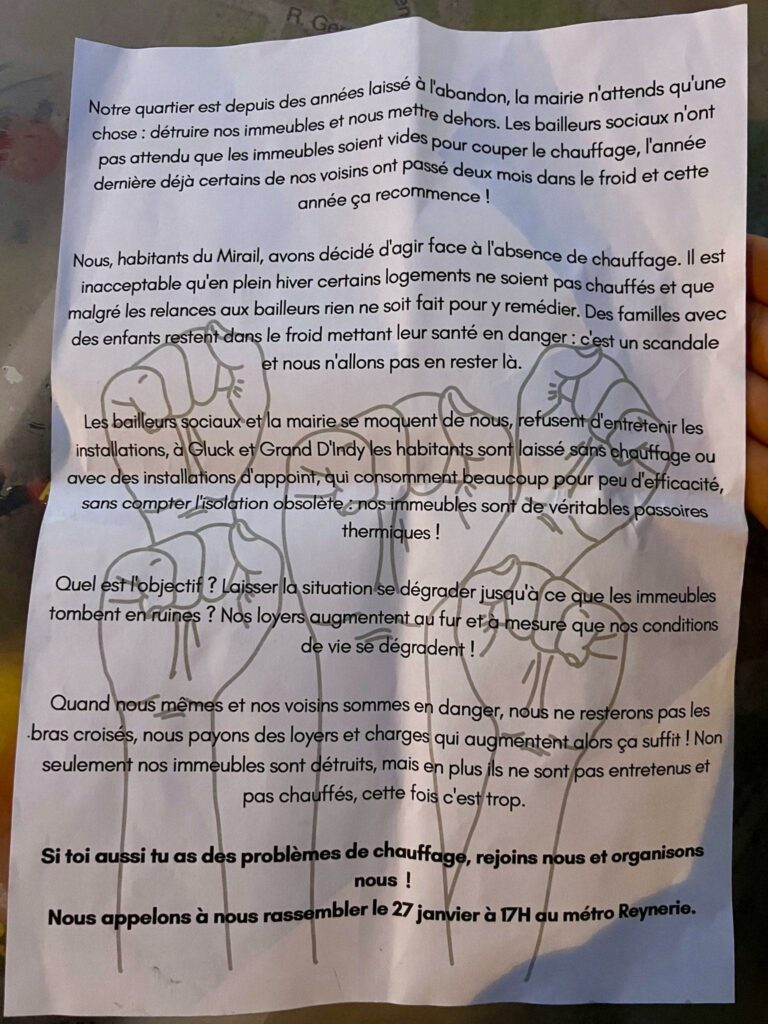 R. Ge
Notre quartier est depuis des années laissé à l'abandon, la mairie n'attends qu'une
chose : détruire nos immeubles et nous mettre dehors. Les bailleurs sociaux n'ont
pas attendu que les immeubles soient vides pour couper le chauffage, l'année
dernière déjà certains de nos voisins ont passé deux mois dans le froid et cette
année ça recommence !
Nous, habitants du Mirail, avons décidé d'agir face à l'absence de chauffage. Il est
inacceptable qu'en plein hiver certains logements ne soient pas chauffés et que
malgré les relances aux bailleurs rien ne soit fait pour y remédier. Des familles avec
des enfants restent dans le froid mettant leur santé en danger : c'est un scandale
et nous n'allons pas en rester là.
Les bailleurs sociaux et la mairie se moquent de nous, refusent d'entretenir les
installations, à Gluck et Grand D'Indy les habitants sont laissé sans chauffage ou
avec des installations d'appoint, qui consomment beaucoup pour peu d'efficacité,
sans compter l'isolation obsolète : nos immeubles sont de véritables passoires
thermiques !
Quel est l'objectif ? Laisser la situation se dégrader jusqu'à ce que les immeubles
tombent en ruines ? Nos loyers augmentent au fur et à mesure que nos conditions
de vie se dégradent !
Quand nous mêmes et nos voisins sommes en danger, nous ne resterons pas les
bras croisés, nous payons des loyers et charges qui augmentent alors ça suffit ! Non
seulement nos immeubles sont détruits, mais en plus ils ne sont pas entretenus et
pas chauffés, cette fois c'est trop.
Si toi aussi tu as des problèmes de chauffage, rejoins nous et organisons
nous !
Nous appelons à nous rassembler le 27 janvier à 17H au métro Reynerie.